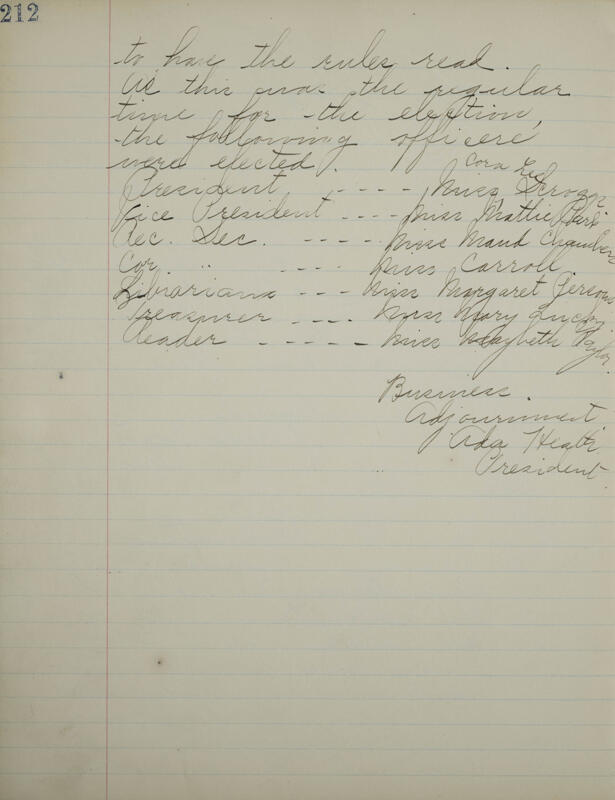 212
to have the rules read.
As this was the regular
time for the election,
the following officers
were elected.
Cora Lee
President ---- Miss Scroggs
Vice President ---- Miss Mattie Park
Rec. Sec. ---- Miss Maud Chambers
Cor. " ---- Miss Carroll
Librarians --- Miss Margaret Persons
Treasurer ---- Miss Mary
Reader ----- Miss Maybeth Taylor
Business.
Adjournment
Ada Heath
President